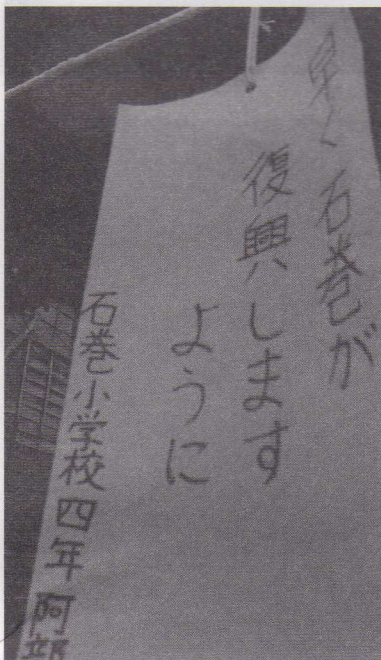 早く石巻が
復興します
ように
石巻小学校四年阿部